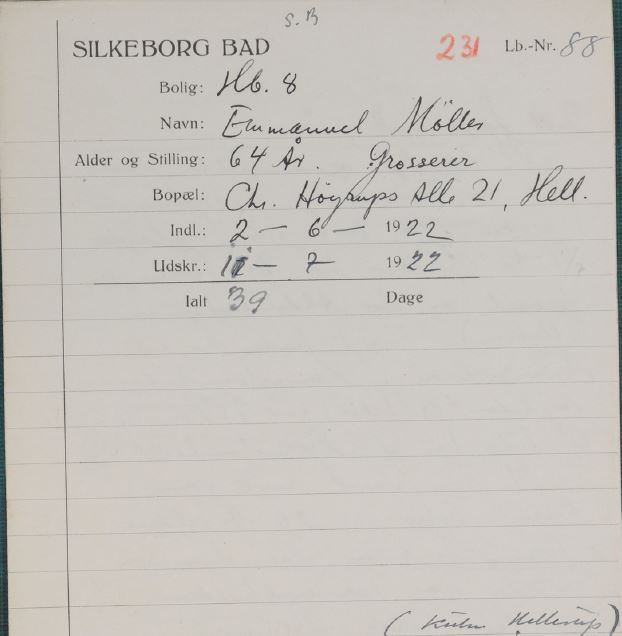 S.B
SILKEBORG BAD 231 Lb.-Nr. 88
Bolig: Hb. 8
Navn: Emmanuel Möller
Alder og Stilling: 64 År. Grosserer
Bopæl: Chr. Höyrups Alle 21, Hell.
Indl.: 2 - 6 - 1922
Udskr.: 11 - 7 1922
Ialt 39 Dage
( Hellerup)